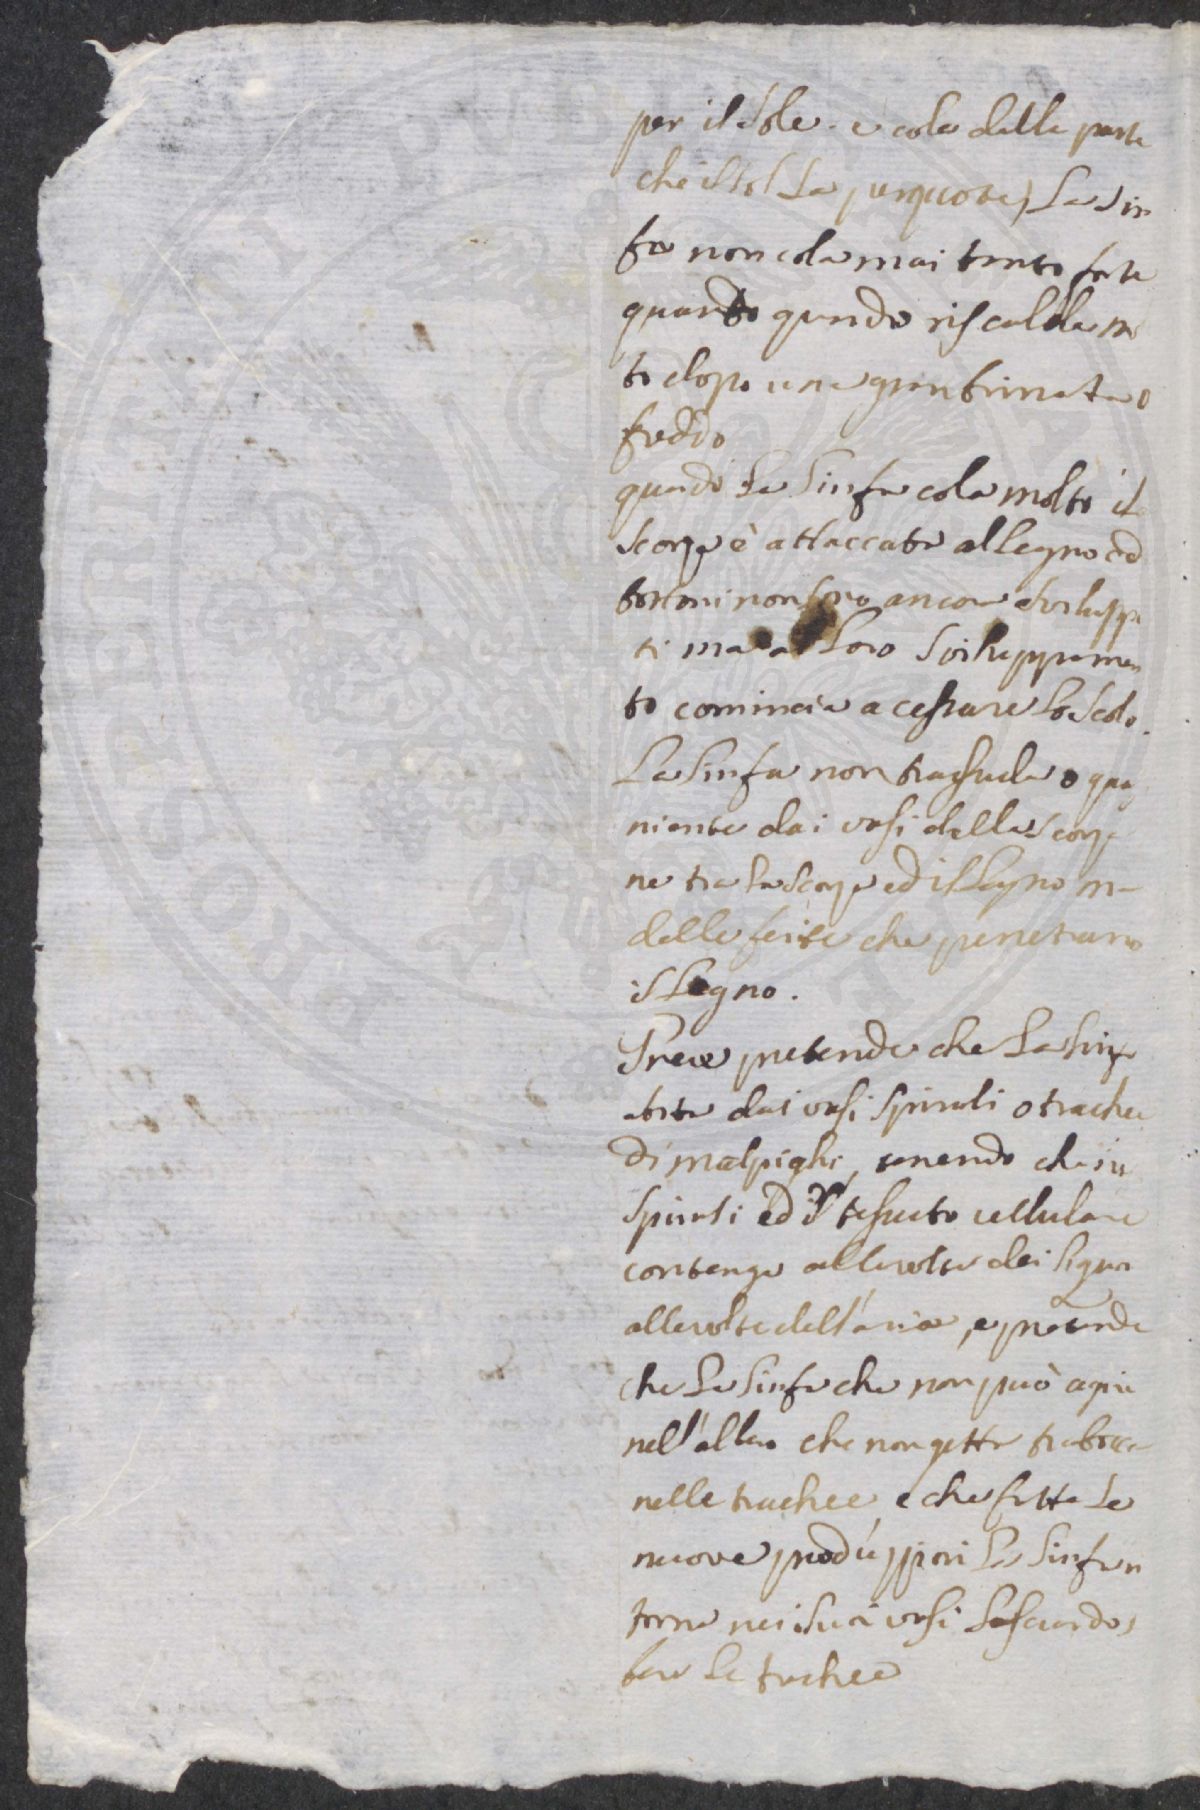 per il Sole. e cola dalla parte
che il Sol la percuote, La Lin
fa non cola mai tanto forte
quanto quando riscaldam
to dopo una gran brinata o
freddo
quando La Linfa cola molto il
scorza è attaccata al Legno ed
bottoni non sono ancora sviluppa
ti ma al Loro Sviluppamen
to comincia a cessare Lo Scolo.
La Linfa non trassuda o qua
niente dai vasi della scorza
ne tra La scorza ed il Legno ma
dalle ferite che penetrano
il Legno.
pretende che La Linfa
dai vasi Spirali o trachee
di Malpighi, tenendo che
Spirali ed il tessuto cellulare
contenga alle volte dei Liquo
alle volte dell'aria, e pretende
che La Linfa che non può agire
nell'albero che non getta trabocca
nelle trachee, e che fatte Le
nuove produzzioni La Linfa
torna nei suoi vasi Lasciando
bere Le trachee